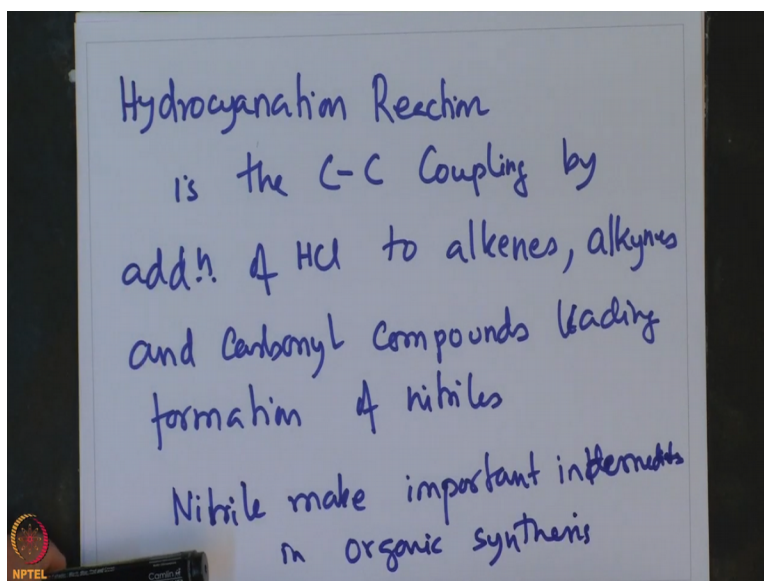 Hydrocyanation Reaction
is the C-C Coupling by
addn. of HCl to alkenes, alkynes
and Carbonyl Compounds leading
formation of nitriles
Nitrile make important intermediates
in organic synthesis
NPTEL
Camlin